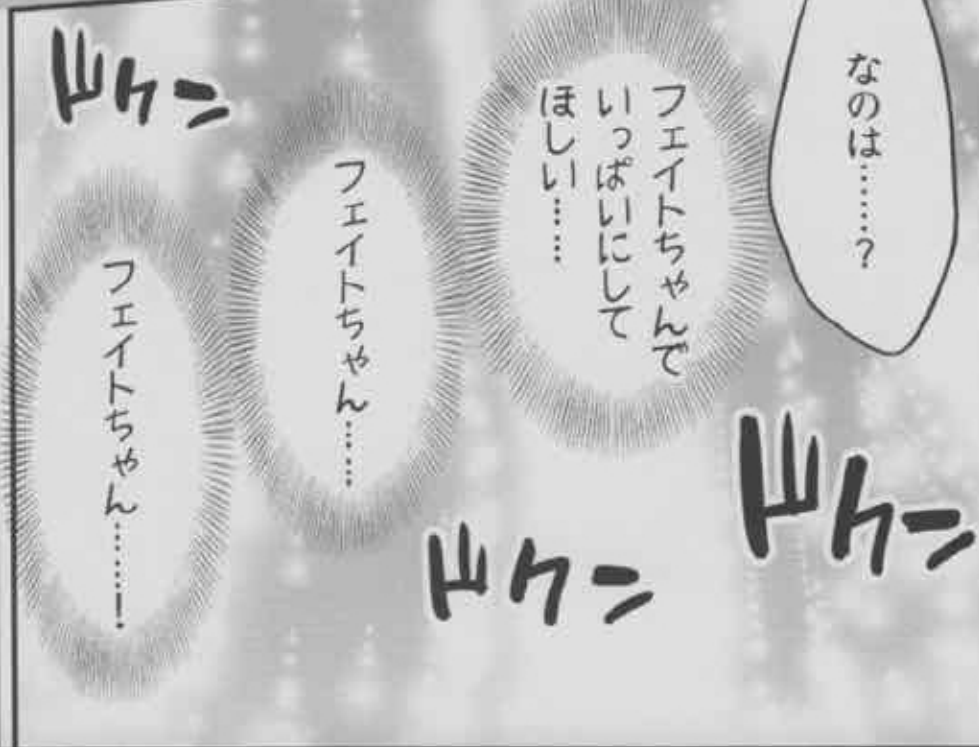 なのは……？
フェイトちゃんで
いっぱいにして
ほしい……
フェイトちゃん……
フェイトちゃん……！
ドクン
ドクン
ドクン